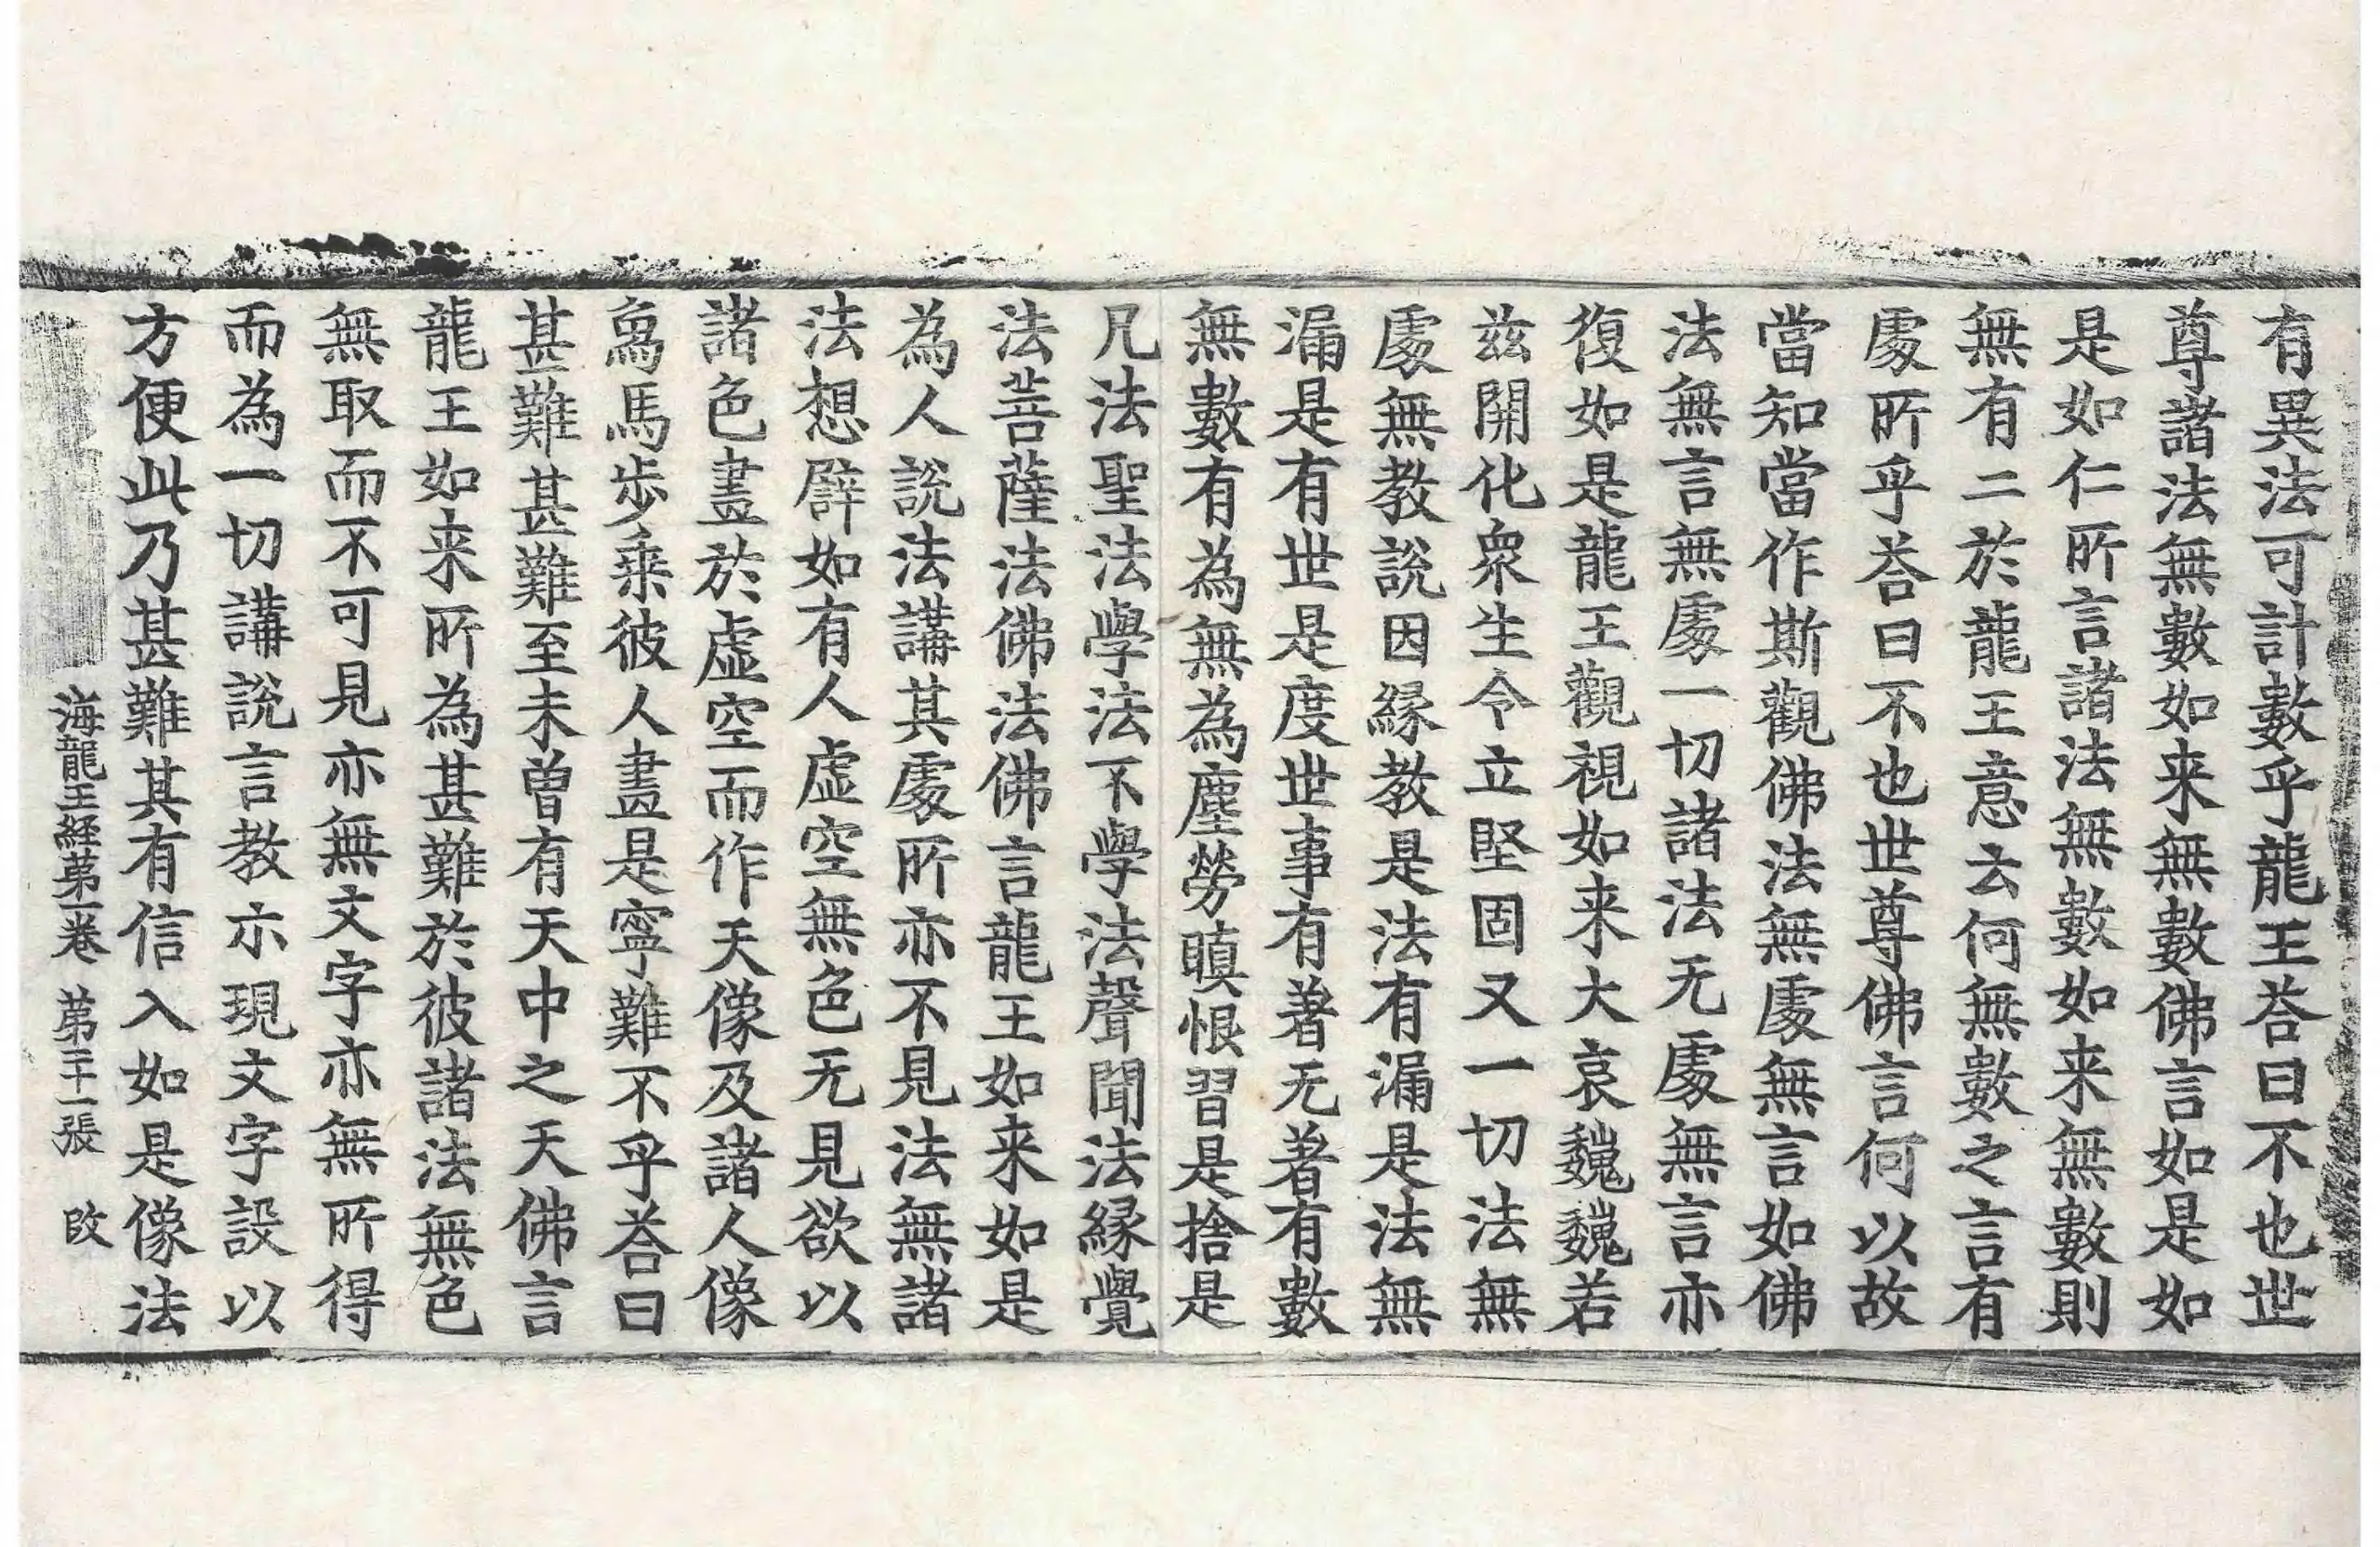 有異法可計數乎龍王荅曰不也世
尊諸法無數如来無數佛言如是如
是如仁所言諸法無數如来無數則
無有二於龍王意云何無數之言有
處所乎荅曰不也世尊佛言何以故
當知當作斯觀佛法無處無言如佛
法無言無處一切諸法无處無言亦
復如是龍王觀視如来大哀巍巍若
兹開化衆生令立堅固又一切法無
處無教說因縁教是法有漏是法無
漏是有世是度世事有著无著有數
無數有為無為塵勞瞋恨習是捨是
凡法聖法學法不學法聲聞法縁覺
法菩薩法佛法佛言龍王如来如是
為人說法講其處所亦不見法無諸
法想辟如有人虛空無色无見欲以
諸色畫於虛空而作天像及諸人像
象馬步乗彼人畫是寧難不乎荅曰
甚難甚難至未曽有天中之天佛言
龍王如来所為甚難於彼諸法無色
無取而不可見亦無文字亦無所得
而為一切講說言教示現文字設以
方便此乃甚難其有信入如是像法
海龍王経苐一卷 苐二十一張 改